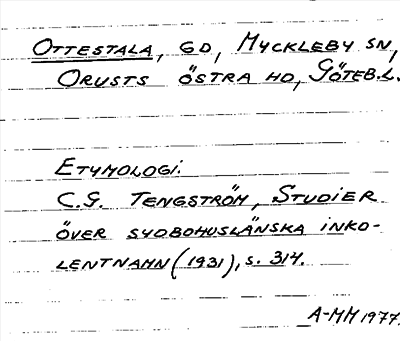 OTTESTALA, GD, MYCKLEBY SN,
ORUSTS ÖSTRA HD, GÖTEB.L.
ETYMOLOGI:
C.G. TENGSTRÖM, STUDIER
ÖVER SYDBOHUSLÄNSKA INKO-
LENTNAMN (1931), S. 314.
A-MM 1977.